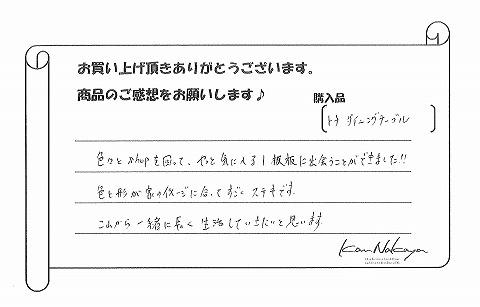 お買い上げ頂きありがとうございます。
商品のご感想をお願いします♪
購入品
トチ ダイニングテーブル
色々と shopを回って、やっと気に入る1枚板に出会うことができました!!
色と形が家のイメージに合ってすごくステキです。
これから一緒に長く生活していきたいと思います
Kan Nakaya